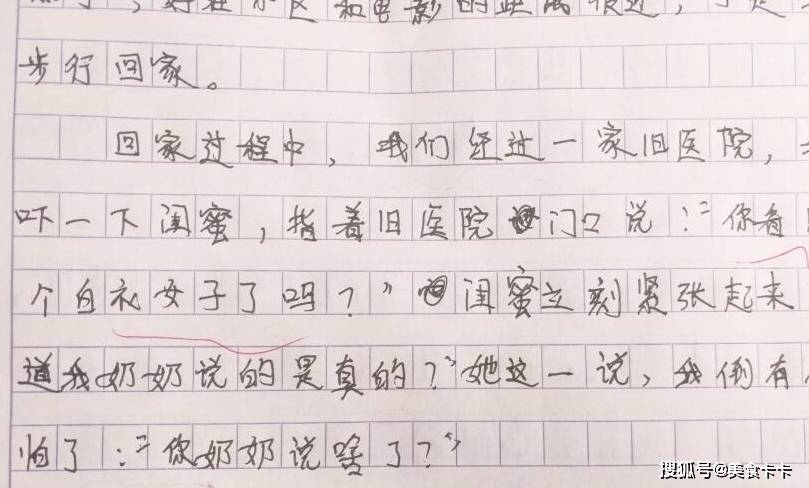 了，好在小区和电影的距离很近，于是
步行回家。
回家过程中，我们经过一家旧医院，
吓一下闺蜜，指着旧医院门口说：“你看
个白衣女子了吗？”闺蜜立刻紧张起来
道我奶奶说的是真的？”她这一说，我倒有
怕了：“你奶奶说啥了？”
搜狐号@美食卡卡